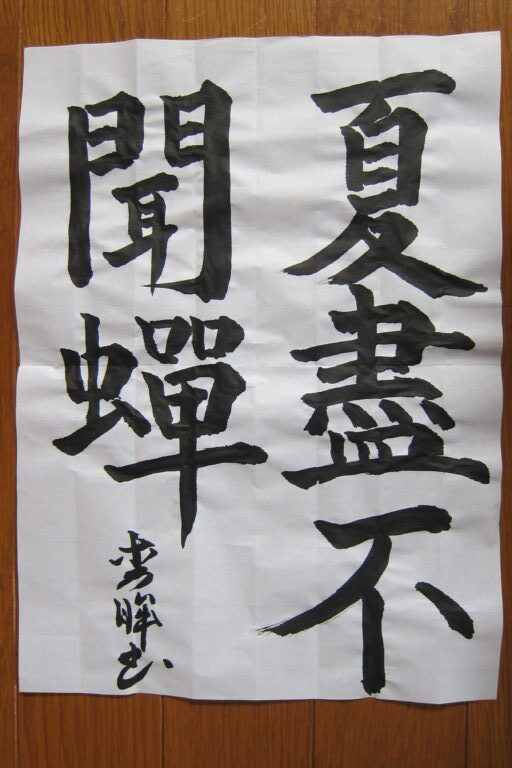 夏盡不
聞蟬